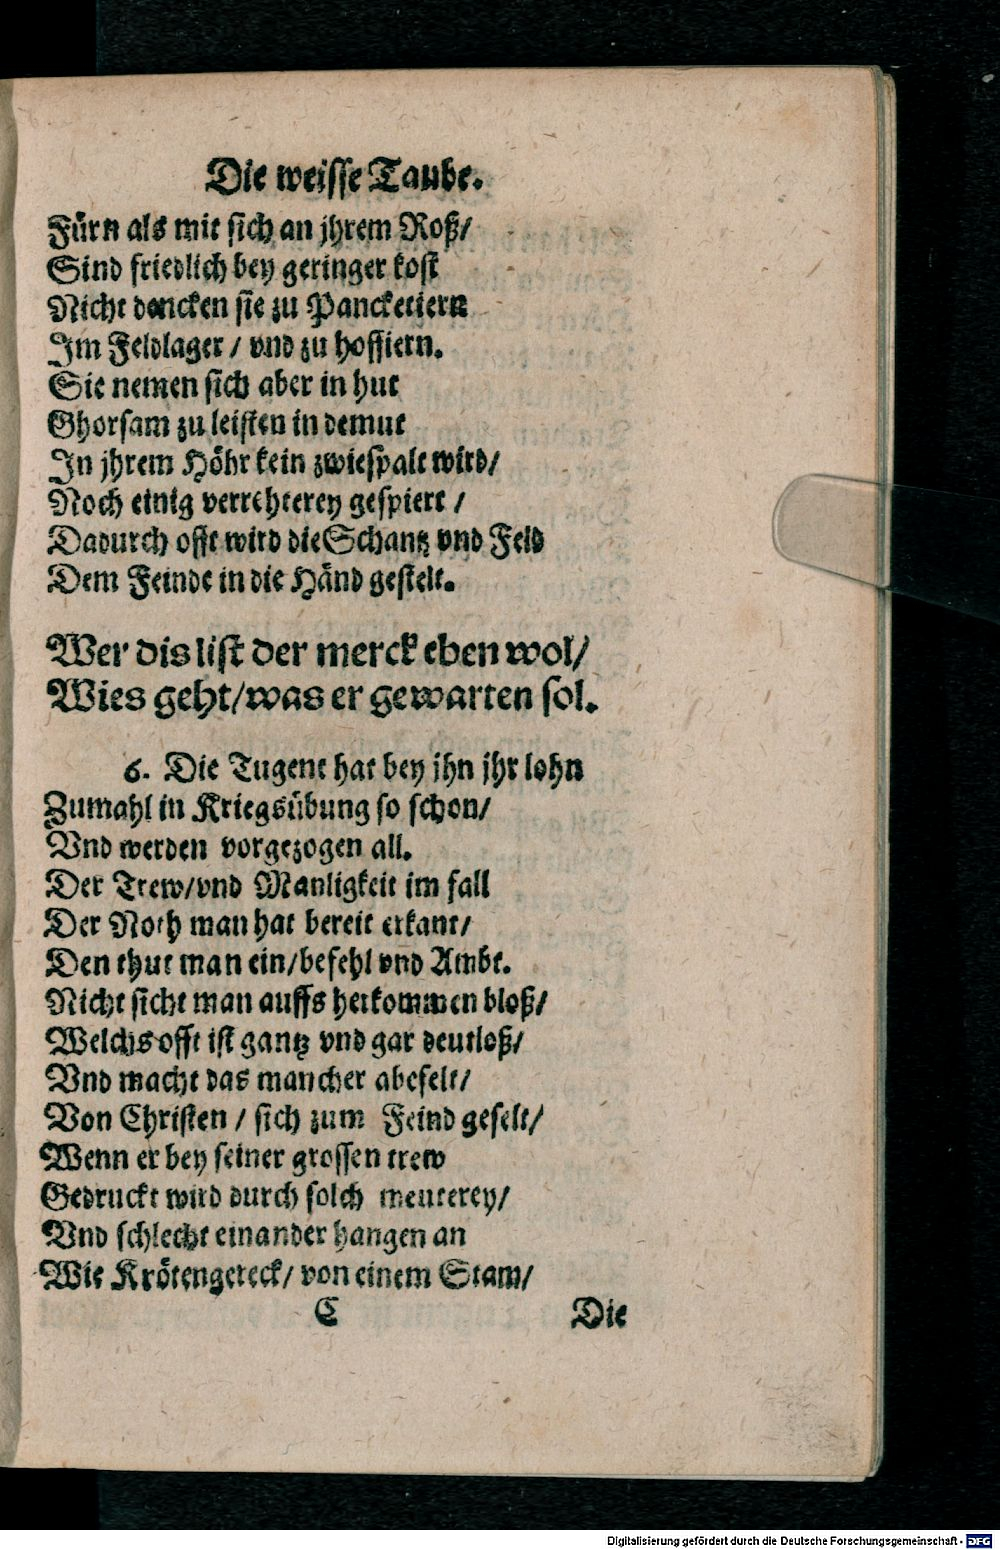 Die weisse Taube.
Fürn als mit sich an jhrem Roß/
Sind friedlich bey geringer kost
Nicht dencken sie zu Pancketiern
Im Feldlager / vnd zu hoffiern.
Sie nemen sich aber in hut
Ghorsam zu leisten in demut
In jhrem Höhr kein zwiespalt wird/
Noch einig verrehterey gespiert /
Dadurch offt wird die Schantz vnd Feld
Dem Feinde in die Händ gestelt.
Wer dis list der merck eben wol/
Wies geht/was er gewarten sol.
6. Die Tugent hat bey jhn jhr lohn
Zumahl in Kriegsübung so schon/
Vnd werden vorgezogen all.
Der Trew/vnd Manligkeit im fall
Der Noth man hat bereit erkant/
Den thut man ein/befehl vnd Ambt.
Nicht sicht man auffs herkommen bloß/
Welchs offt ist gantz vnd gar deutloß/
Vnd macht das mancher abefelt/
Von Christen / sich zum Feind geselt/
Wenn er bey seiner grossen trew
Gedruckt wird durch solch meuterey/
Vnd schlecht einander hangen an
Wie Krötengereck/ von einem Stam/
C Die
Digitalisierung gefördert durch die Deutsche Forschungsgemeinschaft - DFG